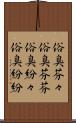 俗臭芬々
俗臭芬芬
俗臭紛々
俗臭紛紛